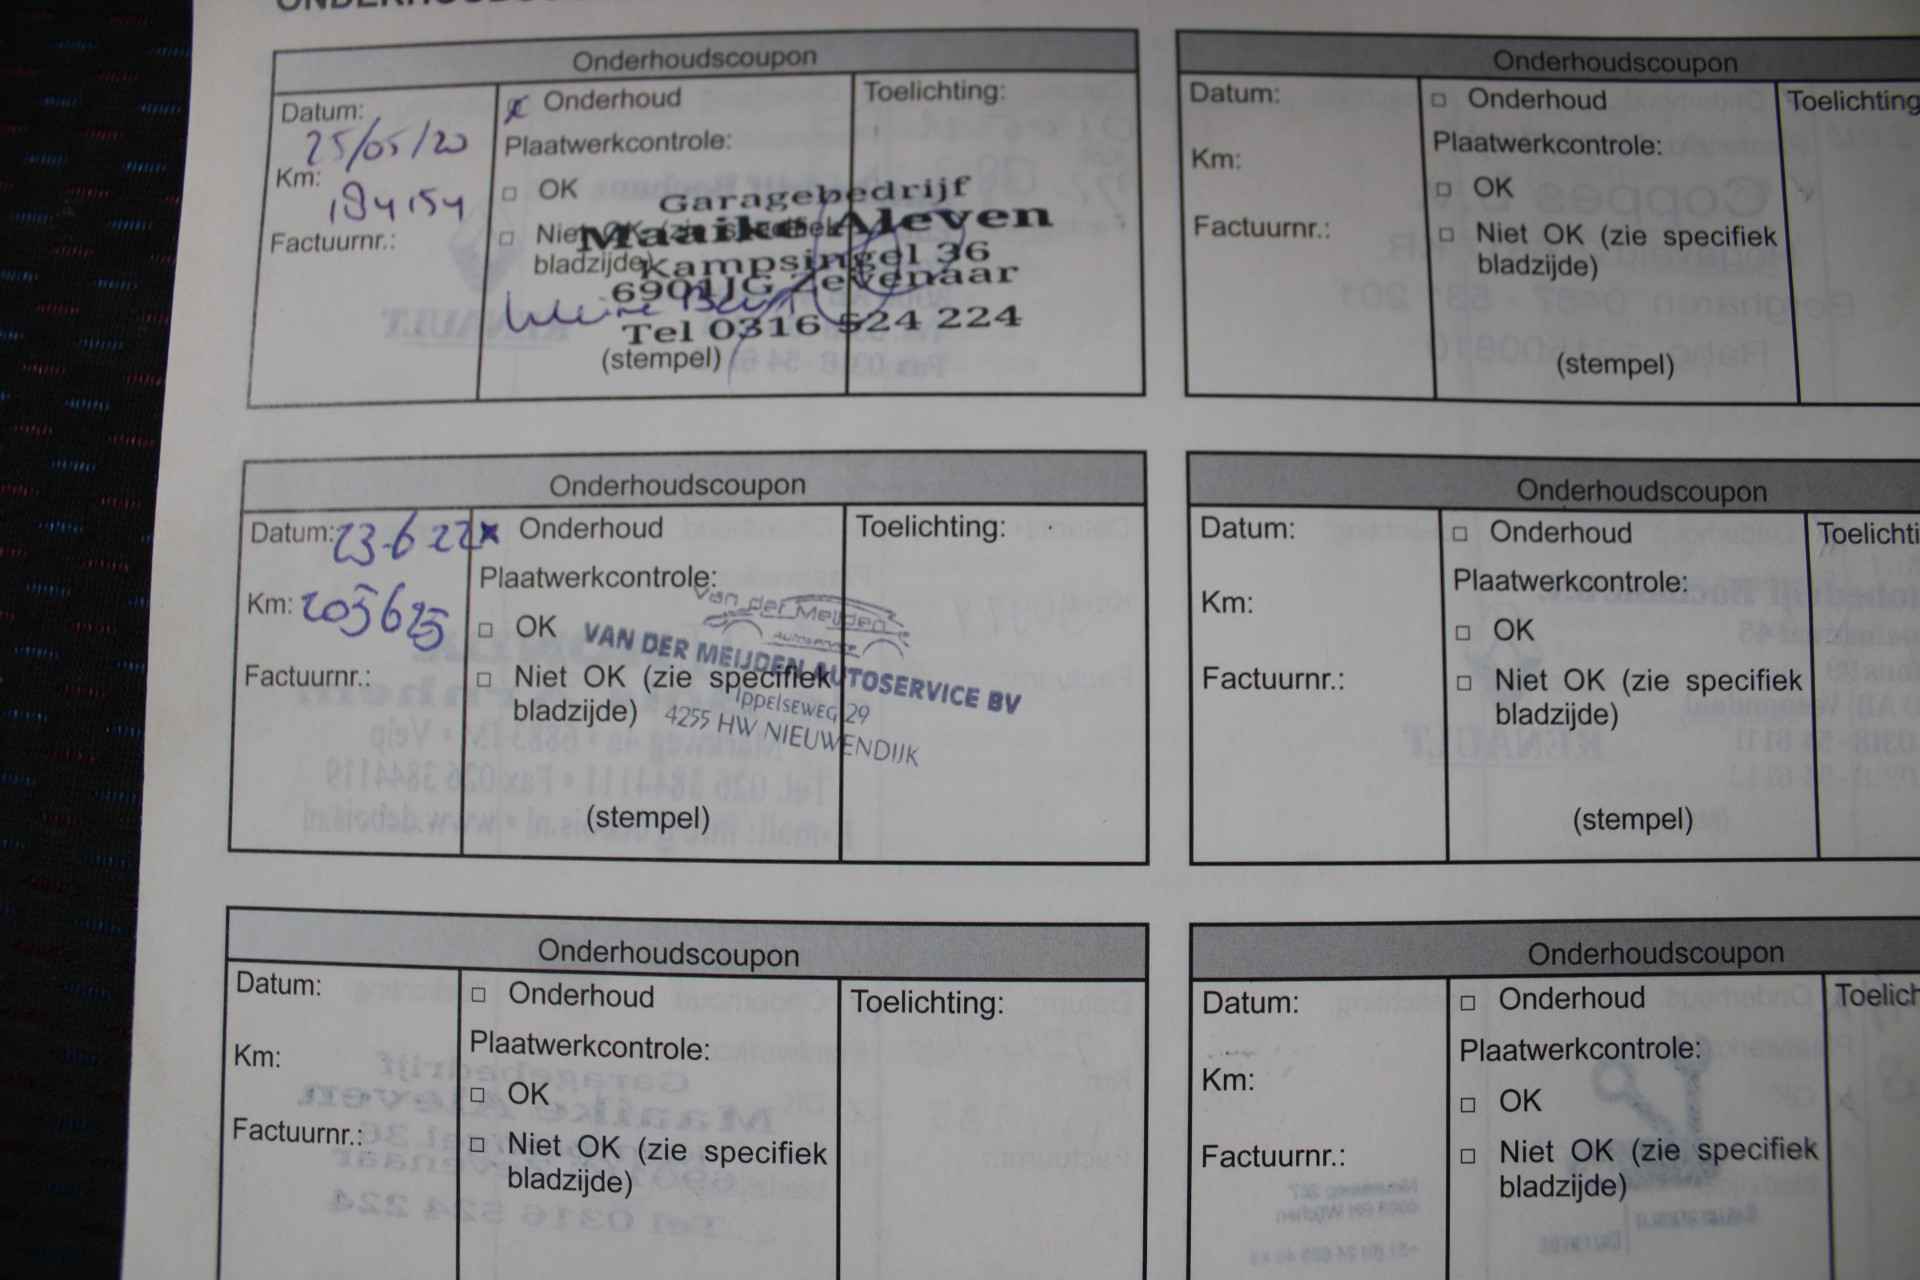 Onderhoudscoupon
Datum:
25/05/20
Km:
184154
Factuurnr.:
x Onderhoud
Plaatwerkcontrole:
□ OK
□ Niet OK (zie specifiek
bladzijde)
(stempel)
Toelichting:
Garagebedrijf
Maaike Aleven
Kampsingel 36
6901JG Zevenaar
Tel 0316 524 224
Onderhoudscoupon
Datum:
Km:
Factuurnr.:
□ Onderhoud
Plaatwerkcontrole:
□ OK
□ Niet OK (zie specifiek
bladzijde)
(stempel)
Toelichting
Onderhoudscoupon
Datum: 23-6-22
Km: 205625
Factuurnr.:
x Onderhoud
Plaatwerkcontrole:
□ OK
□ Niet OK (zie specifiek
bladzijde)
(stempel)
Toelichting:
Van der Meijden
Autoservice
VAN DER MEIJDEN AUTOSERVICE BV
IPPELSEWEG 29
4255 HW NIEUWENDIJK
Onderhoudscoupon
Datum:
Km:
Factuurnr.:
□ Onderhoud
Plaatwerkcontrole:
□ OK
□ Niet OK (zie specifiek
bladzijde)
(stempel)
Toelichti
Onderhoudscoupon
Datum:
Km:
Factuurnr.:
□ Onderhoud
Plaatwerkcontrole:
□ OK
□ Niet OK (zie specifiek
bladzijde)
Toelichting:
Onderhoudscoupon
Datum:
Km:
Factuurnr.:
□ Onderhoud
Plaatwerkcontrole:
□ OK
□ Niet OK (zie specifiek
bladzijde)
Toelich